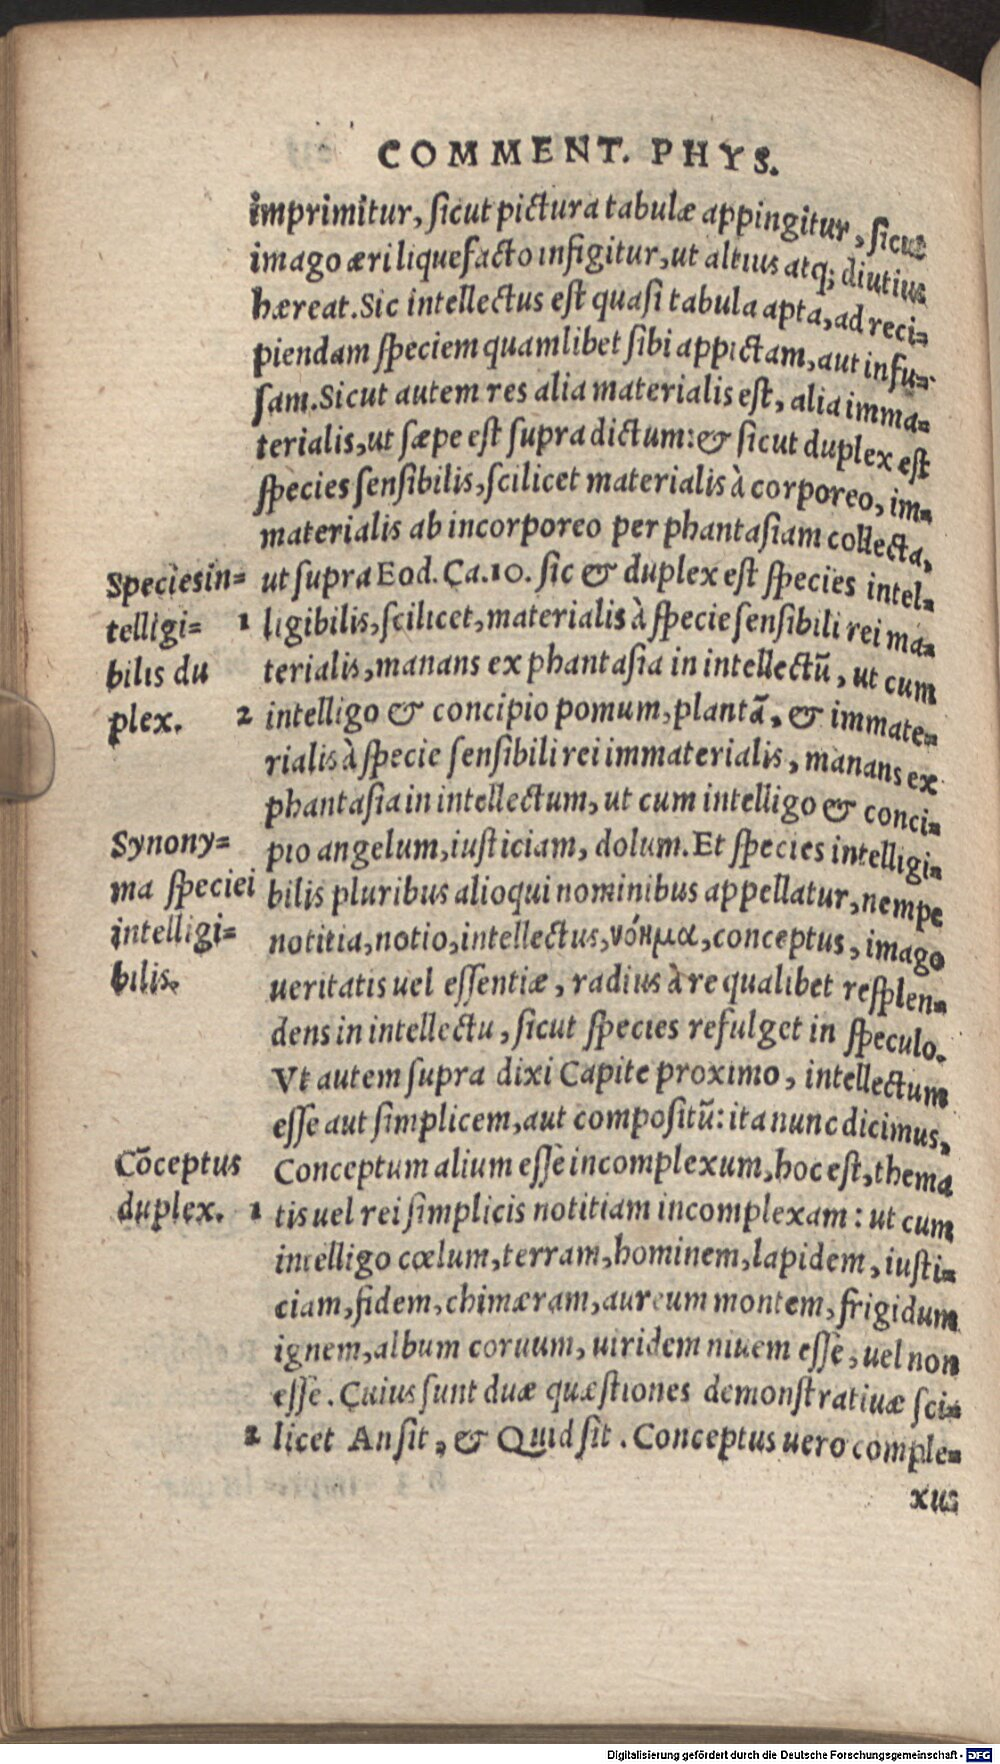 COMMENT. PHYS.
imprimitur, sicut pictura tabulæ appingitur, sicut
imago æri liquefacto infigitur, ut altius atq; diutius
hæreat. Sic intellectus est quasi tabula apta, ad reci-
piendam speciem quamlibet sibi appictam, aut infu-
sam. Sicut autem res alia materialis est, alia imma-
terialis, ut sæpe est supra dictum: & sicut duplex est
species sensibilis, scilicet materialis à corporeo, im-
materialis ab incorporeo per phantasiam collecta,
ut supra Eod. Ca. 10. sic & duplex est species intel-
ligibilis, scilicet, materialis à specie sensibili rei ma-
terialis, manans ex phantasia in intellectũ, ut cum
intelligo & concipio pomum, plantã, & immate-
rialis à specie sensibili rei immaterialis, manans ex
phantasia in intellectum, ut cum intelligo & conci-
pio angelum, iusticiam, dolum. Et species intelligi-
bilis pluribus alioqui nominibus appellatur, nempe
notitia, notio, intellectus, νόημα, conceptus, imago
ueritatis uel essentiæ, radius à re qualibet resplen-
dens in intellectu, sicut species refulget in speculo.
Vt autem supra dixi Capite proximo, intellectum
esse aut simplicem, aut compositũ: ita nunc dicimus,
Conceptum alium esse incomplexum, hoc est, thema
tis uel rei simplicis notitiam incomplexam: ut cum
intelligo cœlum, terram, hominem, lapidem, iusti-
ciam, fidem, chimæram, aureum montem, frigidum
ignem, album coruum, uiridem niuem esse, uel non
esse. Cuius sunt duæ quæstiones demonstratiuæ sci-
licet An sit, & Quid sit. Conceptus uero comple-
xus
Species in-
telligi- 1
bilis du
plex. 2
Synony-
ma speciei
intelligi-
bilis.
Cõceptus
duplex. 1
2